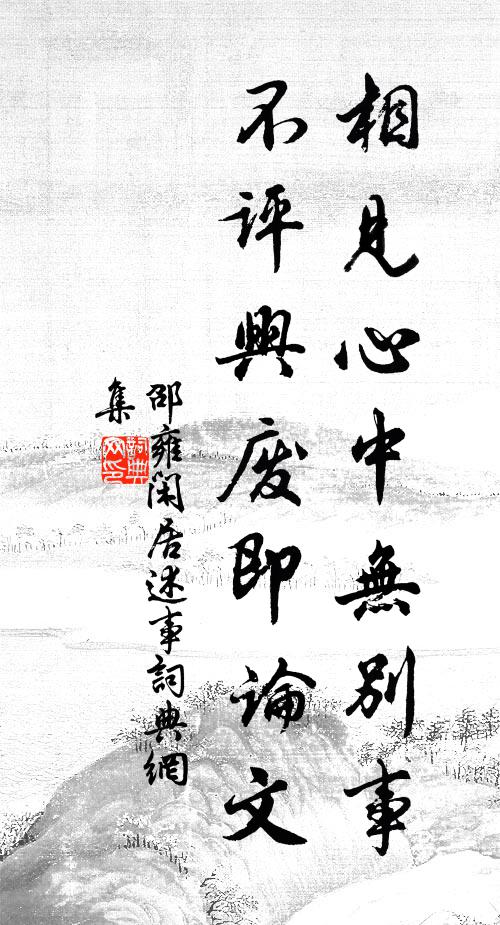 相見心中無別事
不評興廢即論文
邵雍閑居述事詞典網
集
詞典
網印